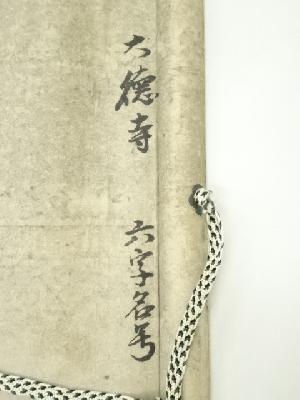 大徳寺 六字名号